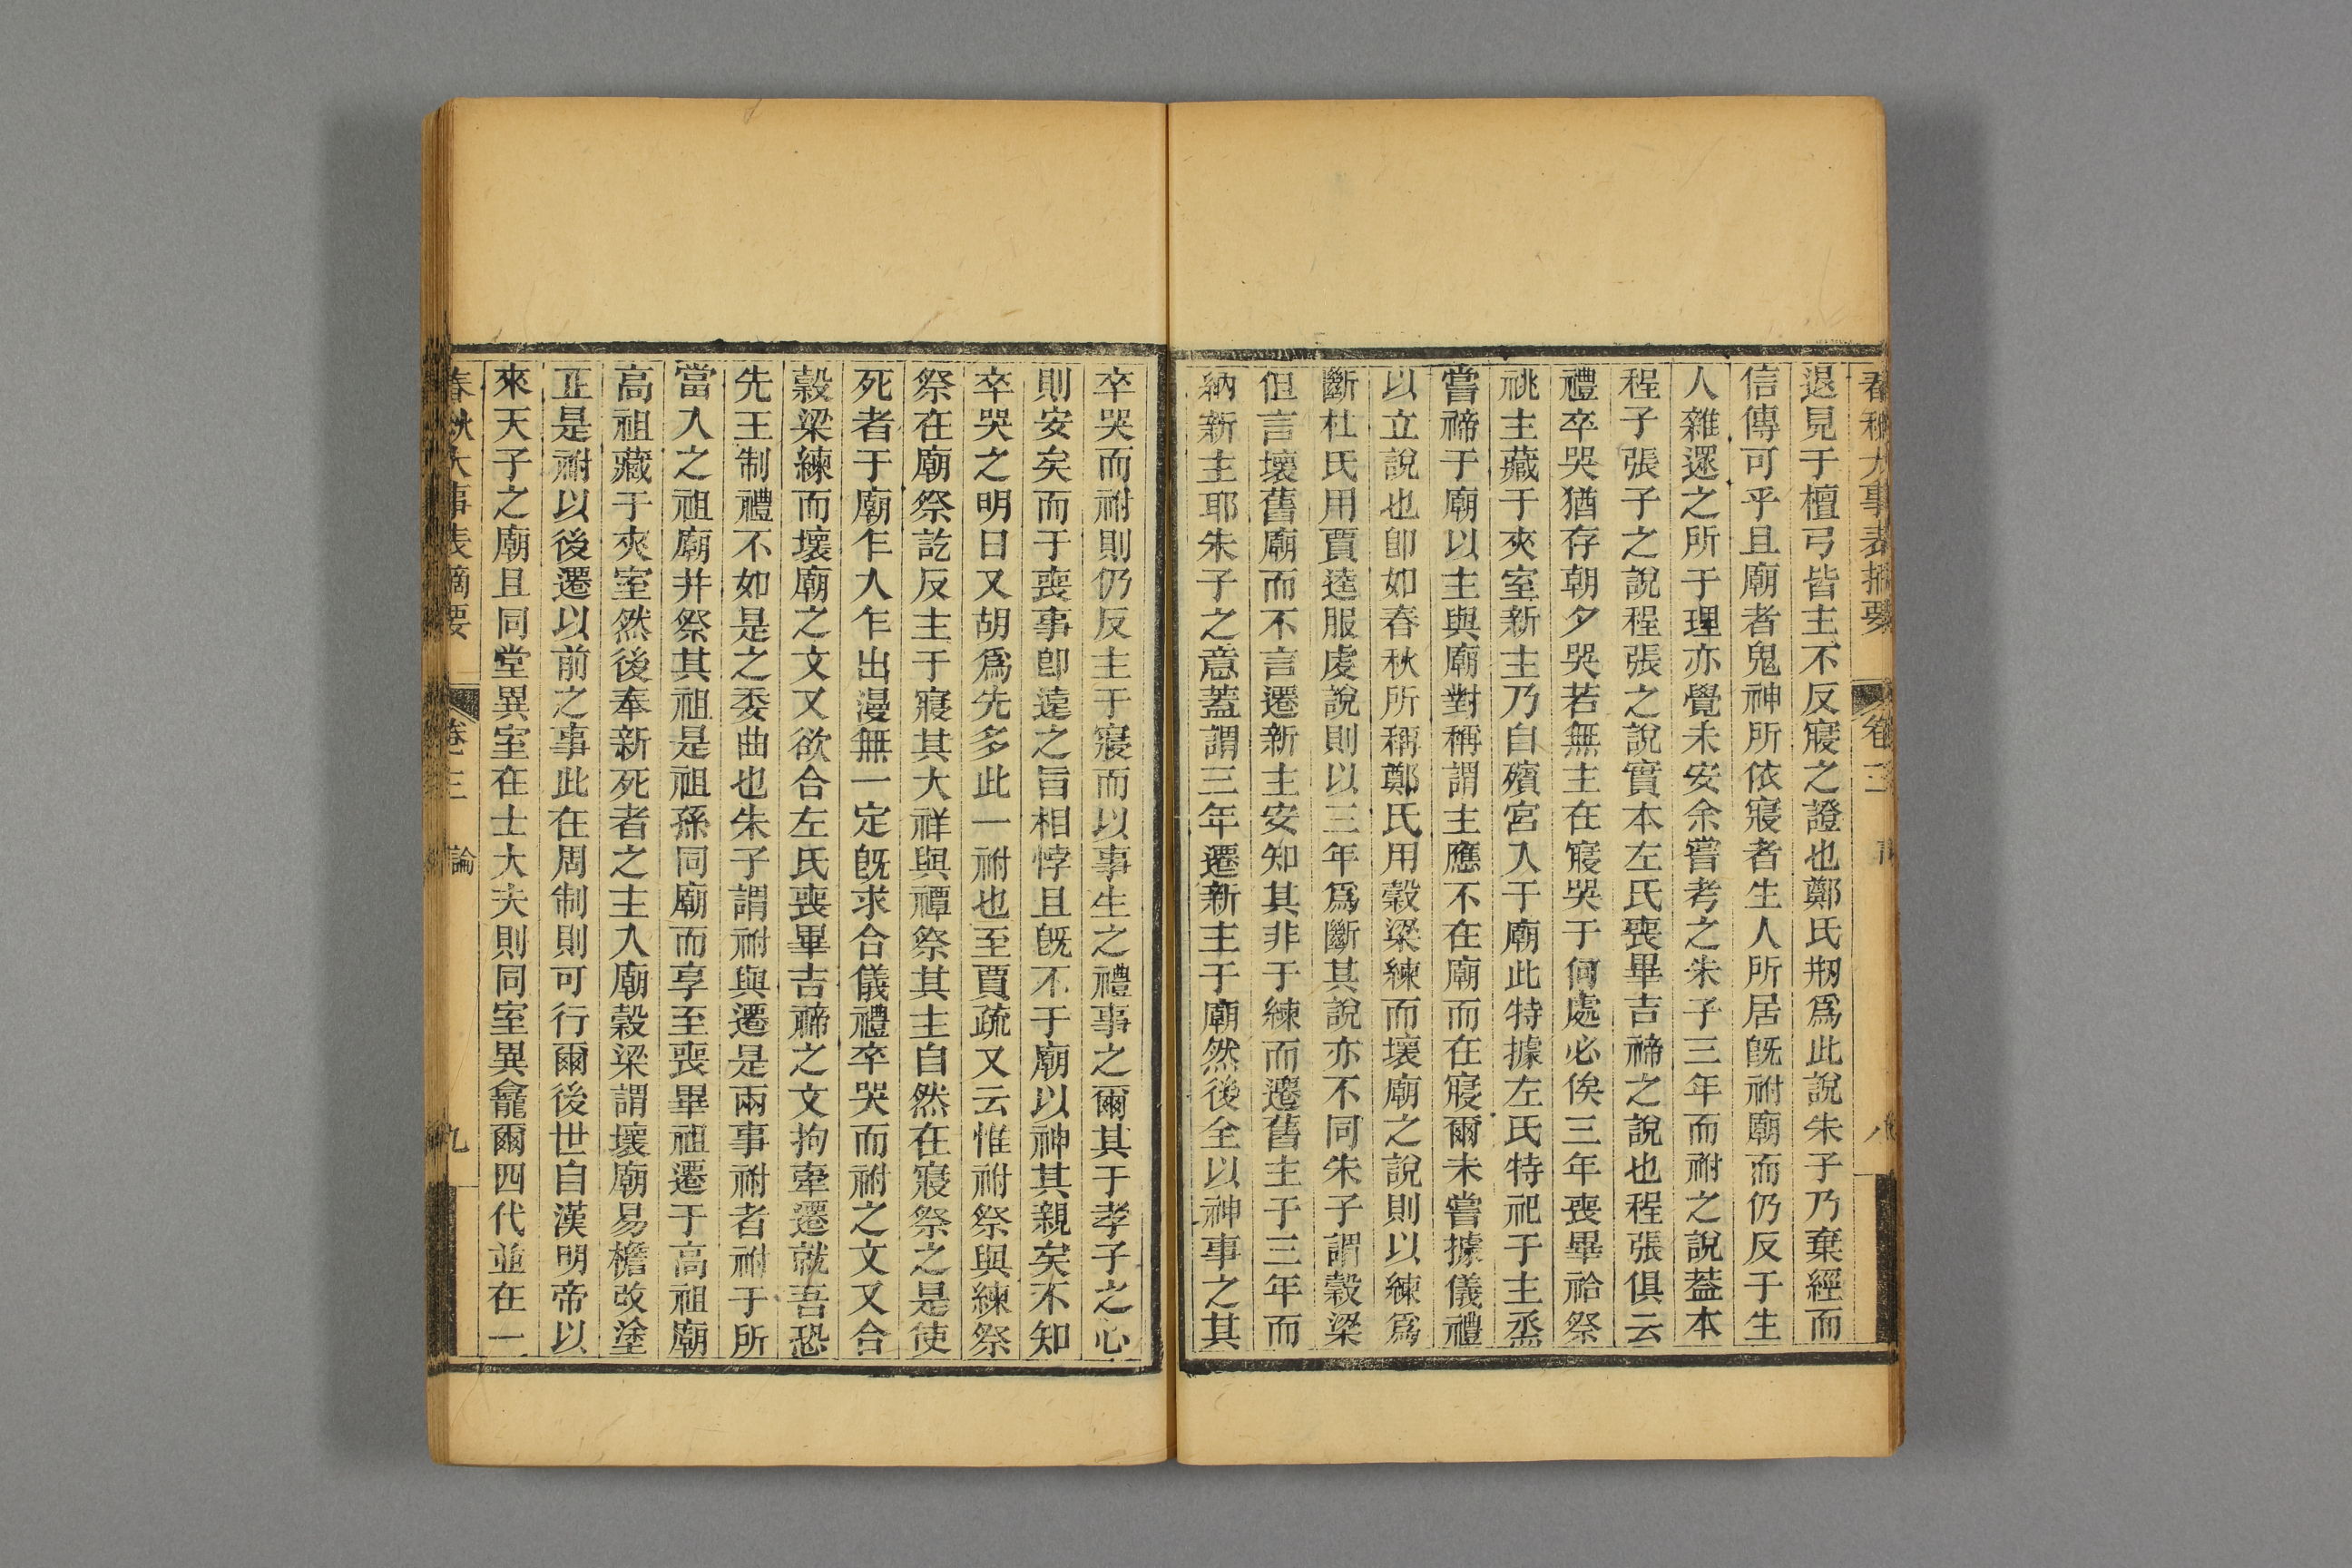 春秋大事表摘要 卷三 八
退見于檀弓皆主不反寢之證也鄭氏剏爲此說朱子乃棄經而
信傳可乎且廟者鬼神所依寢者生人所居旣祔廟而仍反于生
人雜遝之所于理亦覺未安余嘗考之朱子三年而祔之說葢本
程子張子之說程張之說實本左氏喪畢吉禘之說也程張俱云
禮卒哭猶存朝夕哭若無主在寢哭于何處必俟三年喪畢祫祭
祧主藏于夾室新主乃自殯宮入于廟此特據左氏特祀于主烝
嘗禘于廟以主與廟對稱謂主應不在廟而在寢爾未嘗據儀禮
以立說也卽如春秋所稱鄭氏用穀梁練而壞廟之說則以練爲
斷杜氏用賈逵服虔說則以三年爲斷其說亦不同朱子謂穀梁
但言壞舊廟而不言遷新主安知其非于練而遷舊主于三年而
納新主耶朱子之意葢謂三年遷新主于廟然後全以神事之其
卒哭而祔則仍反主于寢而以事生之禮事之爾其于孝子之心
則安矣而于喪事卽遠之旨相悖且旣不于廟以神其親矣不知
卒哭之明日又胡爲先多此一祔也至賈疏又云惟祔祭與練祭
祭在廟祭訖反主于寢其大祥與禫祭其主自然在寢祭之是使
死者于廟乍入乍出漫無一定旣求合儀禮卒哭而祔之文又合
穀梁練而壞廟之文又欲合左氏喪畢吉禘之文拘牽遷就吾恐
先王制禮不如是之委曲也朱子謂祔與遷是兩事祔者祔于所
當入之祖廟并祭其祖是祖孫同廟而享至喪畢祖遷于高祖廟
高祖藏于夾室然後奉新死者之主入廟穀梁謂壞廟易檐改塗
正是祔以後遷以前之事此在周制則可行爾後世自漢明帝以
來天子之廟且同堂異室在士大夫則同室異龕爾四代並在一
春秋大事表摘要 卷三 論 九